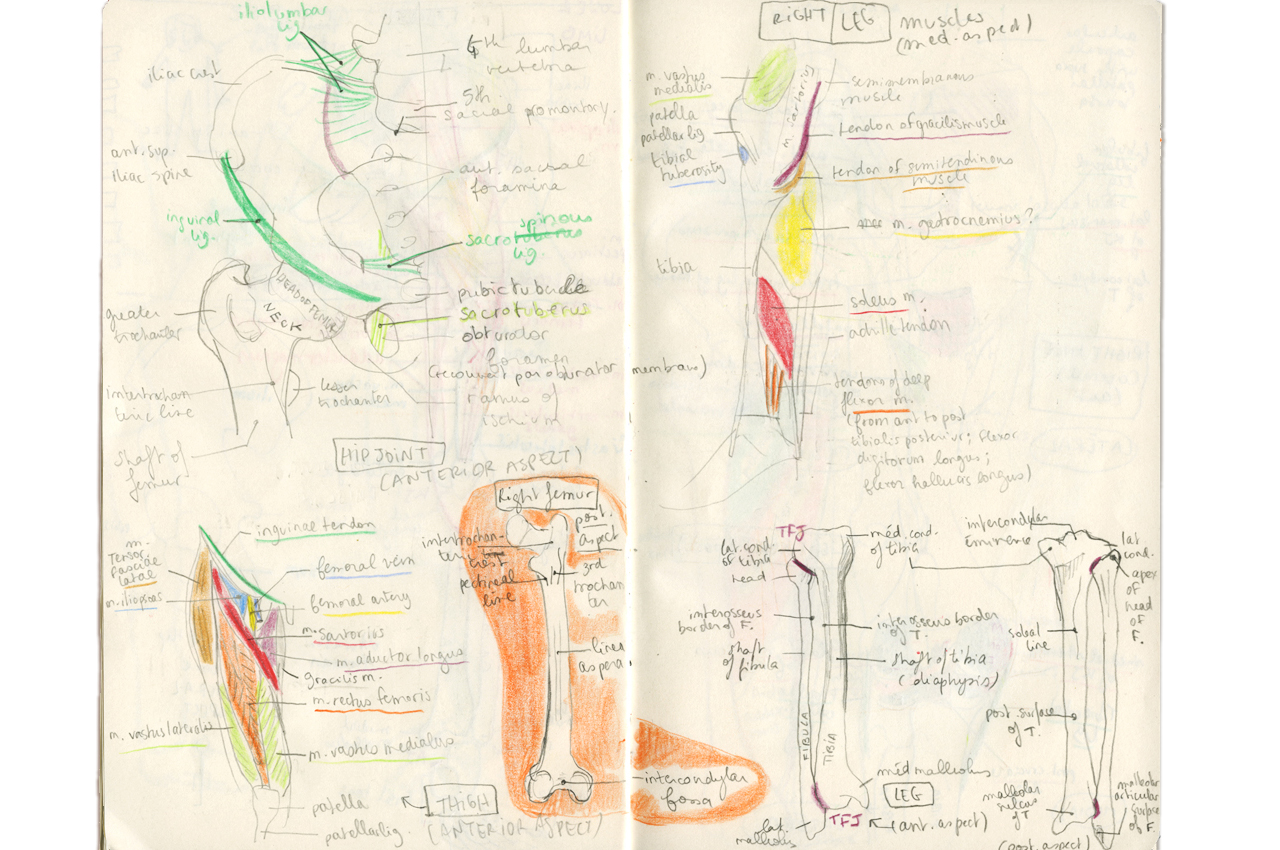 iliolumbar
lig.
iliac crest
4th lumbar
vertebra
5th
sacral promontory.
ant. sup.
iliac spine
ant. sacral
foramina
inguinal
lig.
spinous
sacrotuberus
lig.
greater
trochanter
HEAD OF FEMUR
NECK
pubic tubercle
sacrotuberus
obturador
foramen
(recouvert par oburator membrane)
intertrochan
teric line
lesser
trochanter
ramus of
ischium
shaft of
femur
HIP JOINT
(ANTERIOR ASPECT)
inguinae tendon
m.
Tensor
fasciae
latae
femoral vein
m. iliopsoas
femoral artery
m. sartorius
m. aductor longus
gracilis m.
m. rectus femoris
m. vastus lateralis
m. vastus medialus
patella
patellar lig.
THIGH
(ANTERIOR ASPECT)
Right femur
post.
aspect
intertrochan
teric line
crest
pectineal
line
3rd
trochan
ter
linea
aspera
intercondylar
fossa
RIGHT LEG muscles
(med. aspect)
m. vastus
medialis
patella
patellar lig
tibial
tuberosity
m. sartorius
semimembranous
muscle
tendon of gracilis muscle
tendon of semitendinous
muscle
m. gastrocnemius?
tibia
soleus m.
achille tendon
tendons of deep
flexor m.
(from ant to post
tibialis posterior; flexor
digitorum longus;
flexor hallucis longus)
TFJ
lat. cond.
of tibia
head
méd. cond.
of tibia
interosseus
border of F.
interosseus border
of T.
shaft
of fibula
shaft of tibia
(diaphysis)
FIBULA
TIBIA
méd malleolus
LEG
lat.
malleolus
TFJ
(ant. aspect)
intercondylar
éminence
lat
cond.
apex
of
head
of
F.
soleal
line
post. surface
of T.
malleolar
sulcus
of T
malleolar
articular
surface
of F.
(post. aspect)